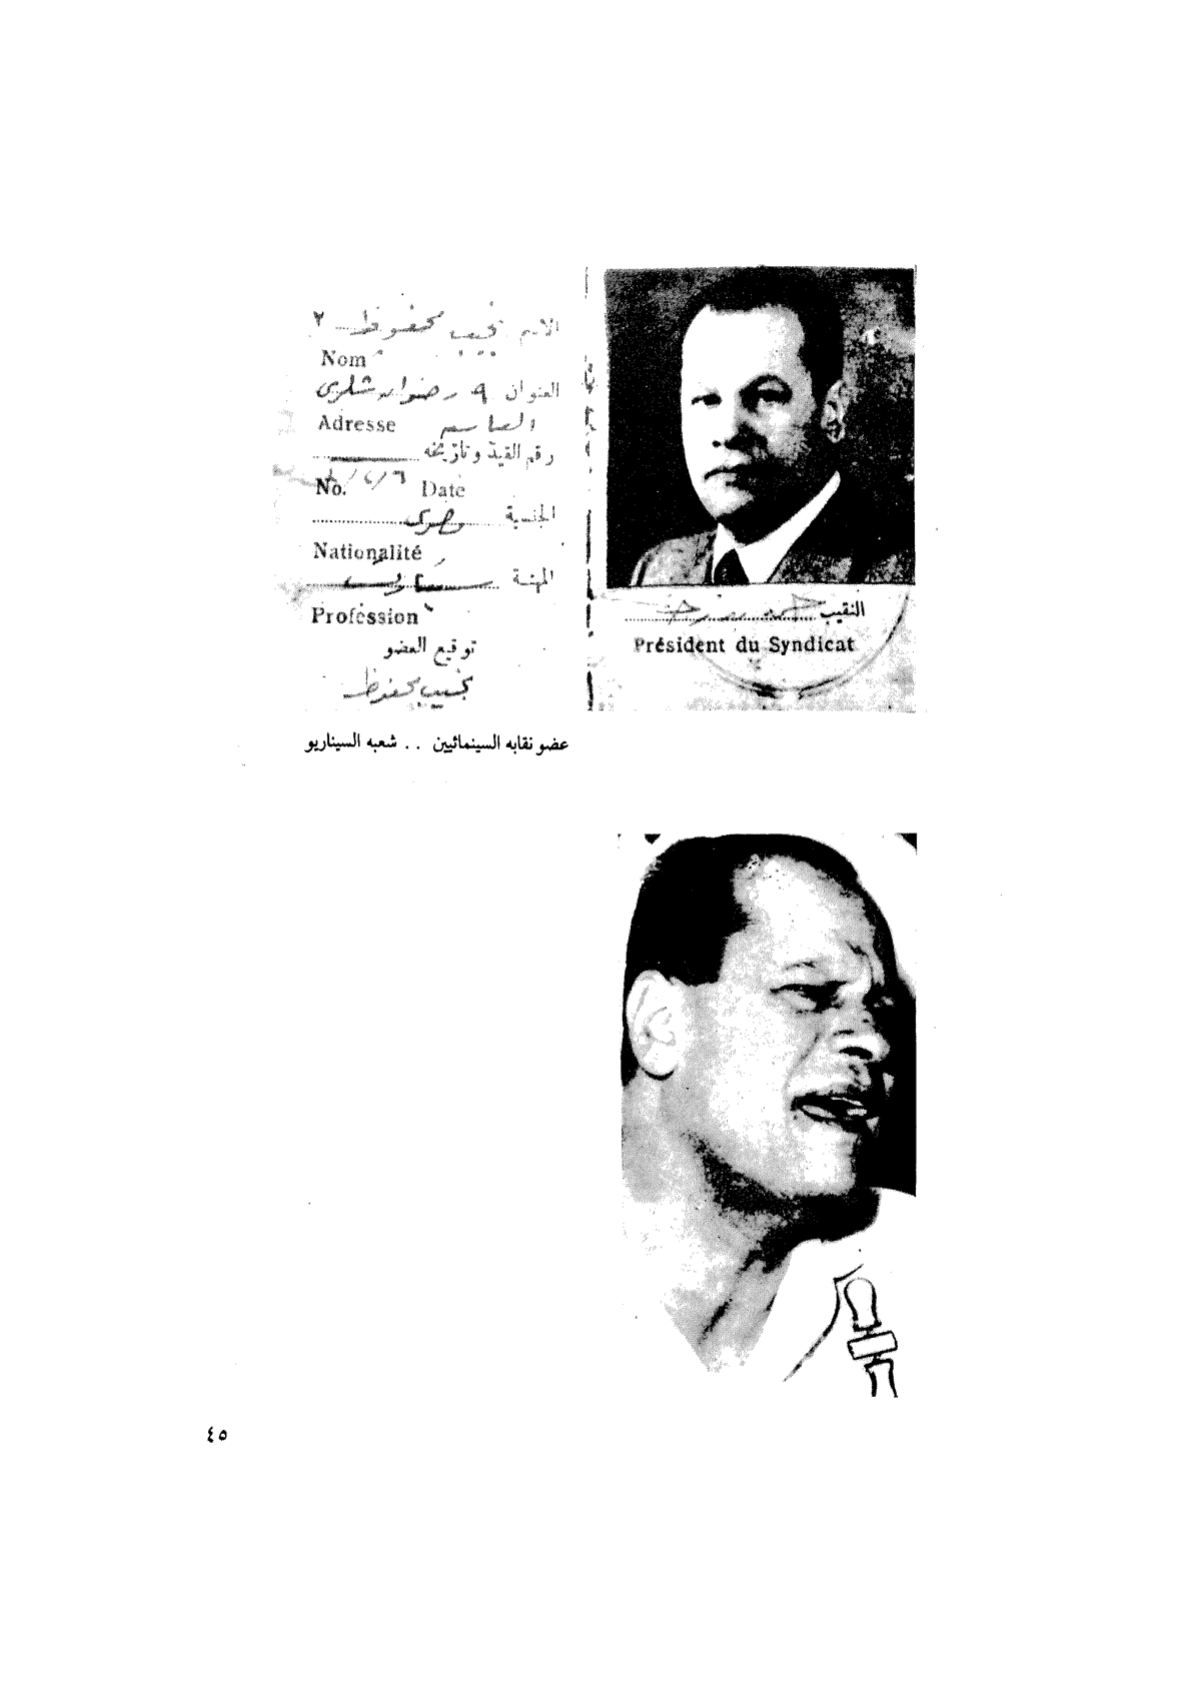 الاسم نجيب محفوظ
Nom
العنوان ٩ رضوان شكرى
Adresse
رقم القيد وتاريخه
No. Date
الجنسية مصرى
Nationalité
المهنة
Profession
توقيع العضو
نجيب محفوظ
النقيب
Président du Syndicat
عضو نقابه السينمائيين . . شعبه السيناريو
٤٥